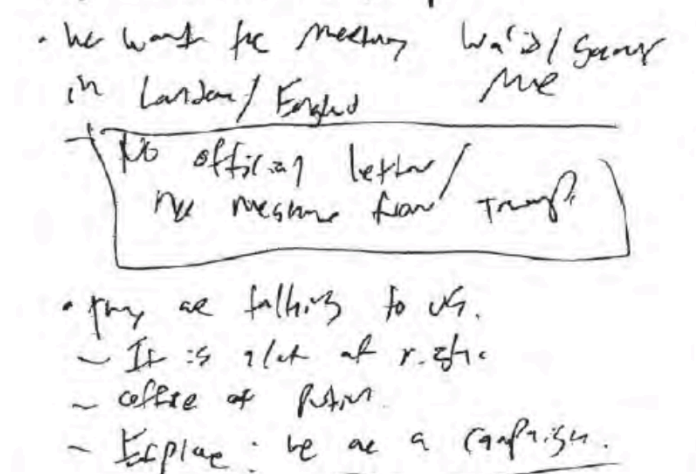 • he want the meeting Walid/
in London/England me
No official letter/
no message from Trump.
• they are talking to us.
– It is a lot of risk
– office of Putin.
– Explore: we are a campaign.